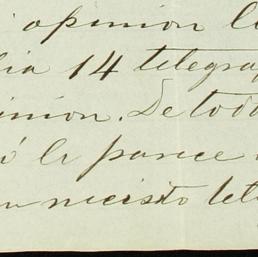 opinion
dia 14 telegra
inion. De tod
le parece
necesito tele